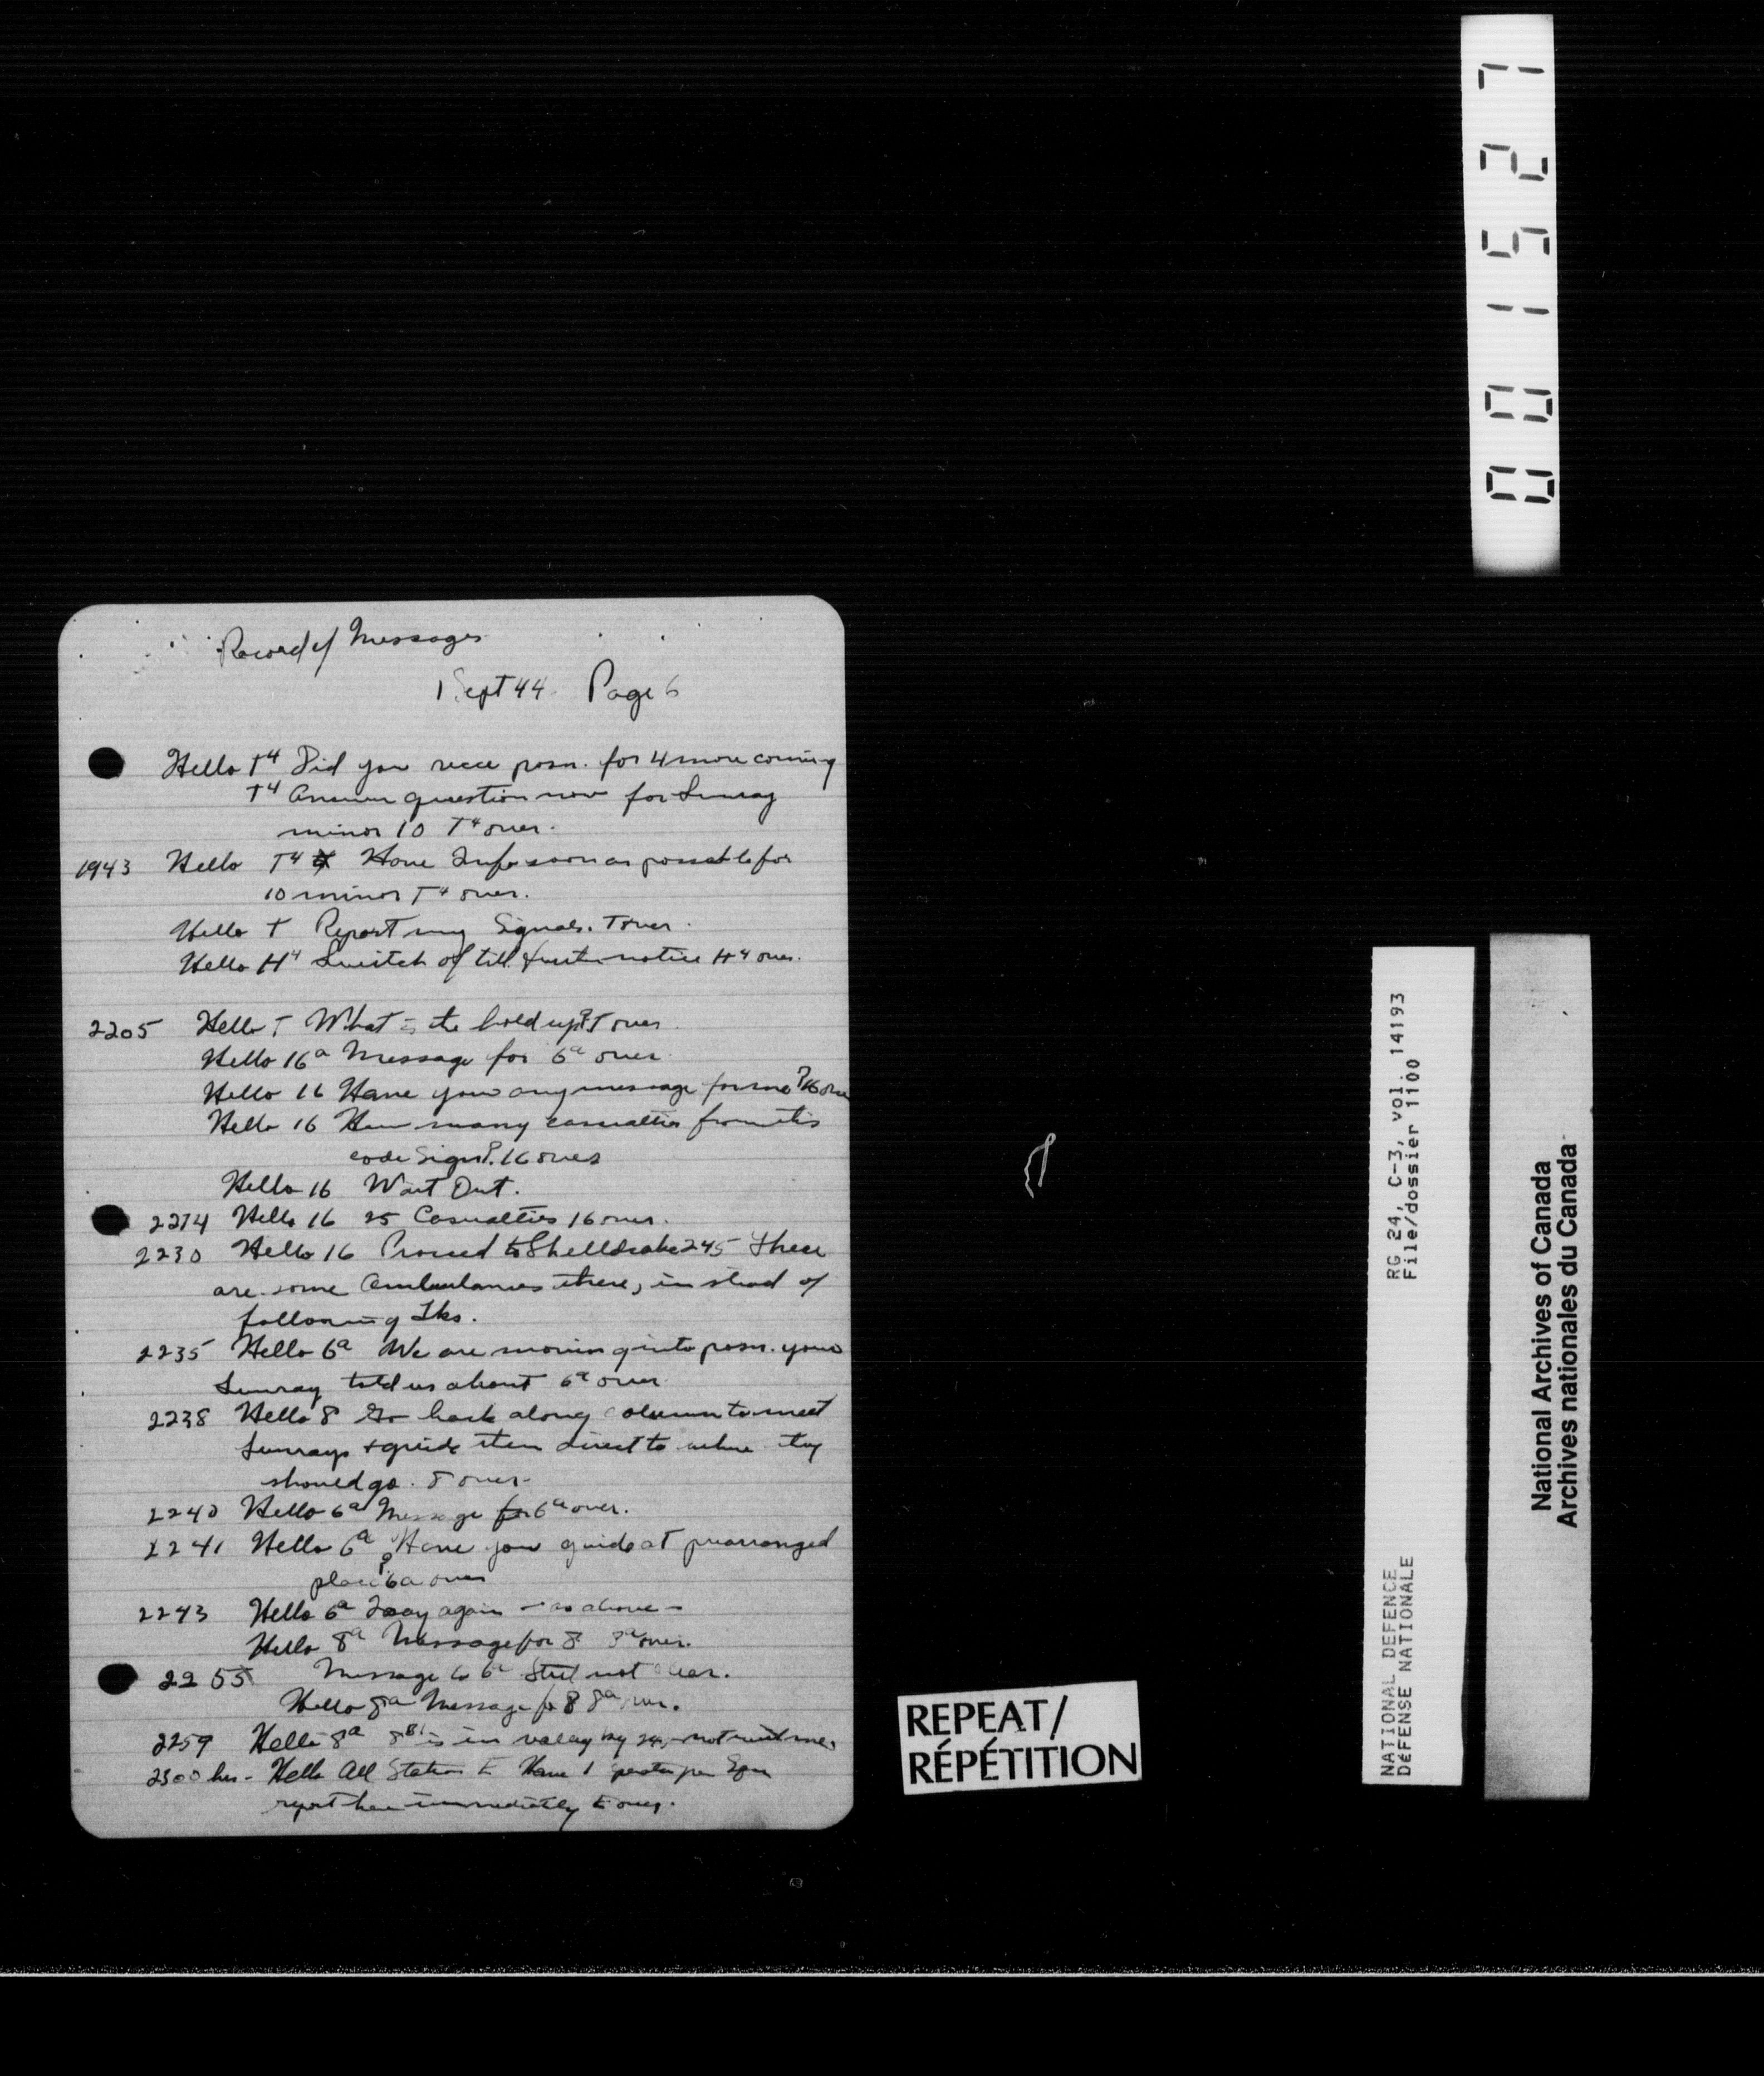 Record of Messages
1 Sept 44. Page 6
Hello T4 Did you recce posn. for 4 more coming
T4 Answer question now for Sunray
minor 10 T4 over.
1943 Hello T4 Have Info soon as possible for
10 minor T4 over.
Hello T Report my Signals. T over.
Hello H4 Switch of till further notice H4 over.
2205 Hello T What is the hold up? T over.
Hello 16a Message for 6a over.
Hello 16 Have you any message for me? 16 over
Hello 16 How many casualties from this
code Sign?. 16 over
Hello 16 Wait Out.
2214 Hello 16 25 Casualties 16 over.
2230 Hello 16 Proceed to Shelldrake 245 There
are some Ambulances there, in stead of
following Tks.
2235 Hello 6a We are moving into posn. your
Sunray told us about 6a over
2238 Hello 8 Go back along column to meet
Sunrays + guide them direct to where they
should go. 8 over-
2240 Hello 6a Message for 6a over.
2241 Hello 6a Have you guide at prearranged
place? 6a over
2243 Hello 6a I say again - as above -
Hello 8a Message for 8 8a over.
2255 Message to 6a Still not clear.
Hello 8a Message for 8 8a over.
2259 Hello 8a is in valley by
2300 hrs - Hello All Stations E Have 1 per
report here immediately E over.
REPEAT/
RÉPÉTITION
001527
RG 24, C-3, vol. 14193
File/dossier 1100
NATIONAL DEFENCE
DÉFENSE NATIONALE
National Archives of Canada
Archives nationales du Canada